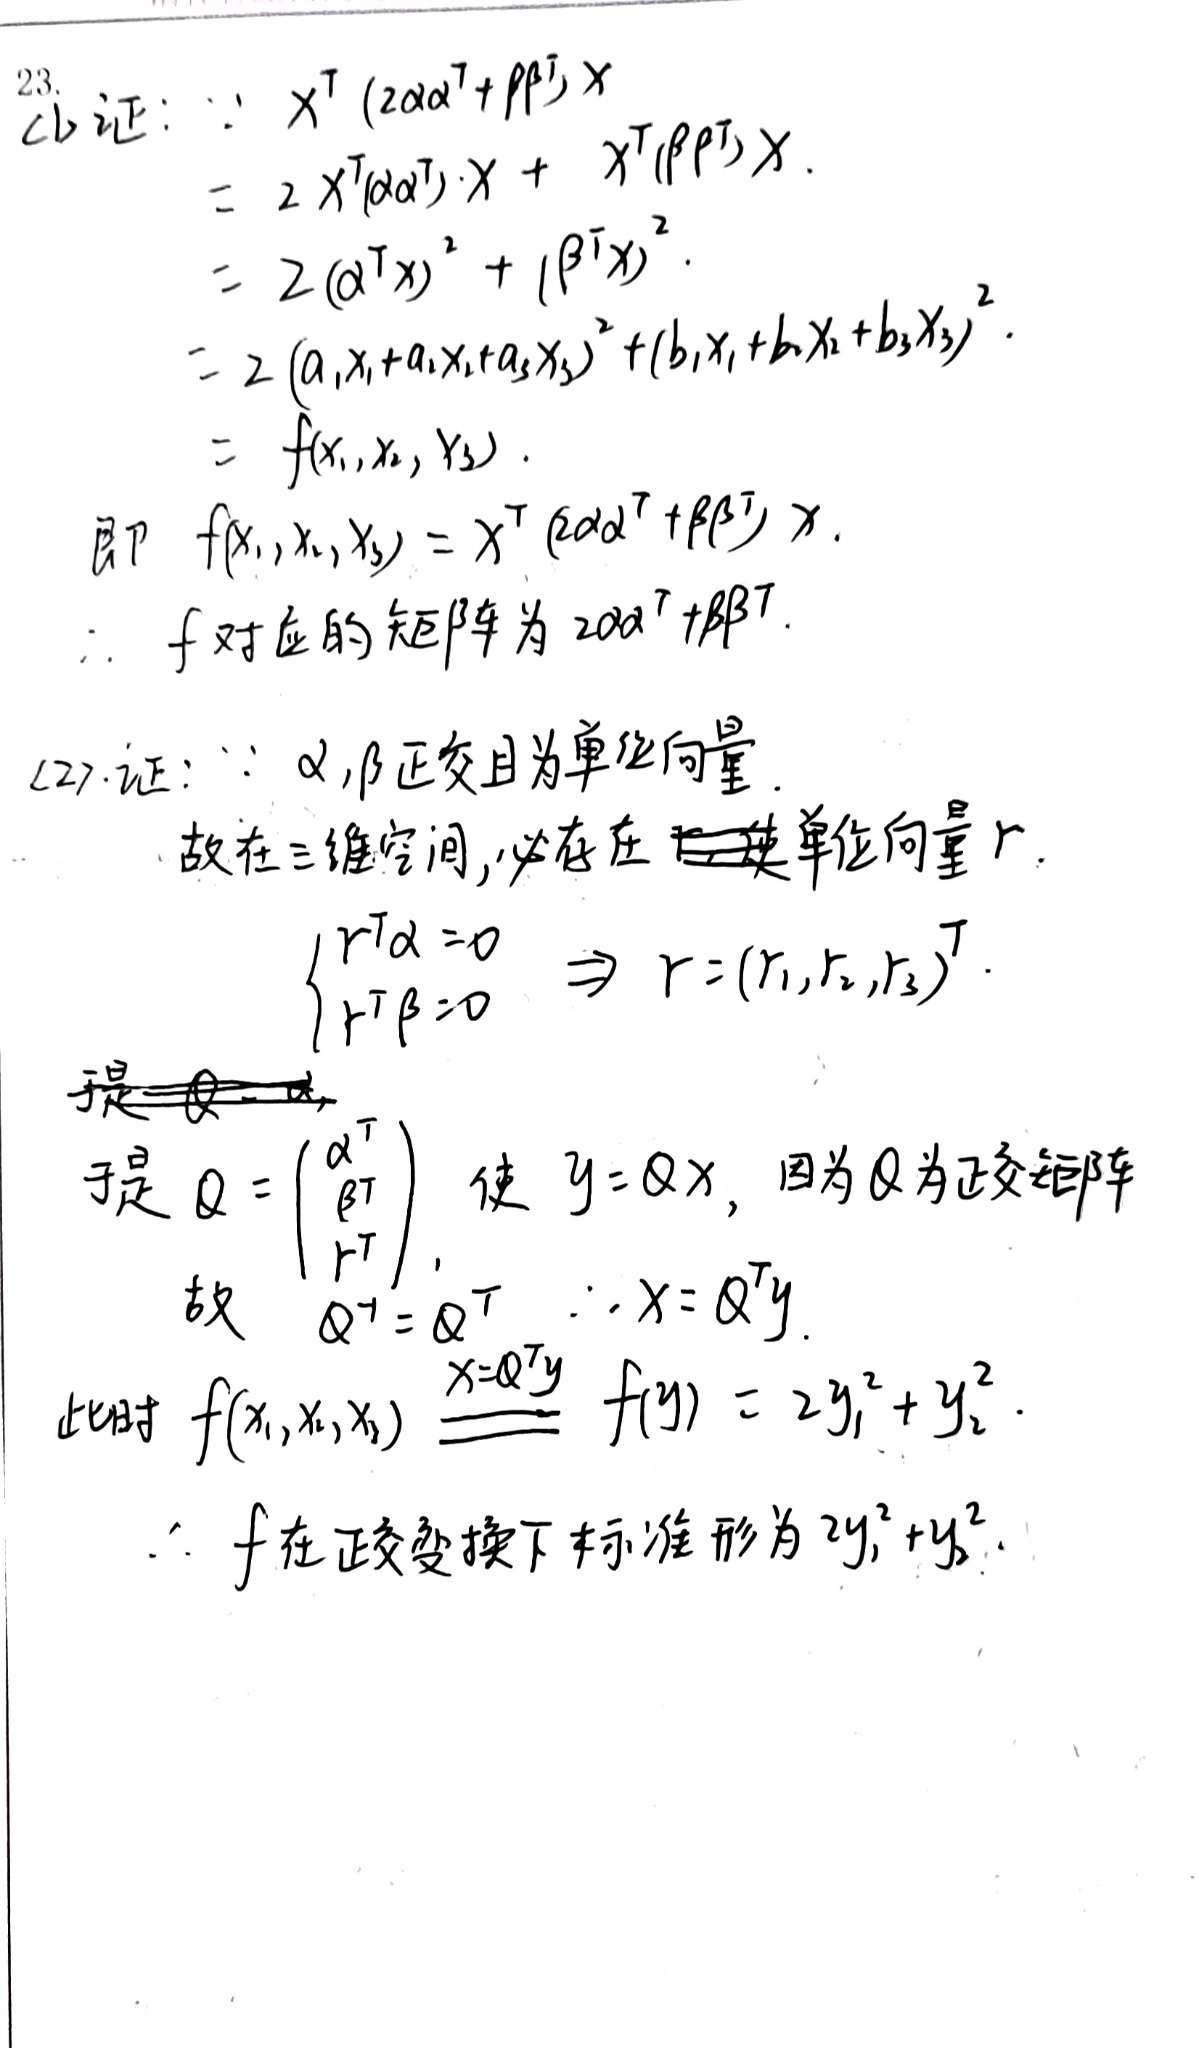 23.
(1) 证: ∵ x^T (2αα^T + ββ^T) x
= 2 x^T(αα^T)·x + x^T(ββ^T) x.
= 2 (α^T x)^2 + (β^T x)^2.
= 2 (a_1x_1 + a_2x_2 + a_3x_3)^2 + (b_1x_1 + b_2x_2 + b_3x_3)^2.
= f(x_1, x_2, x_3).
即 f(x_1, x_2, x_3) = x^T (2αα^T + ββ^T) x.
∴ f 对应的矩阵为 2αα^T + ββ^T.
(2).证: ∵ α, β 正交且为单位向量.
故在三维空间, 必存在 单位向量 r.
{ r^T α = 0
r^T β = 0 ⇒ r = (r_1, r_2, r_3)^T.
于是 Q = α,
于是 Q = (α^T β^T r^T), 使 y = Qx, 因为 Q 为正交矩阵
故 Q^-1 = Q^T ∴ x = Q^T y.
此时 f(x_1, x_2, x_3) x=Q^T y == f(y) = 2y_1^2 + y_2^2.
∴ f 在正交变换下标准形为 2y_1^2 + y_2^2.